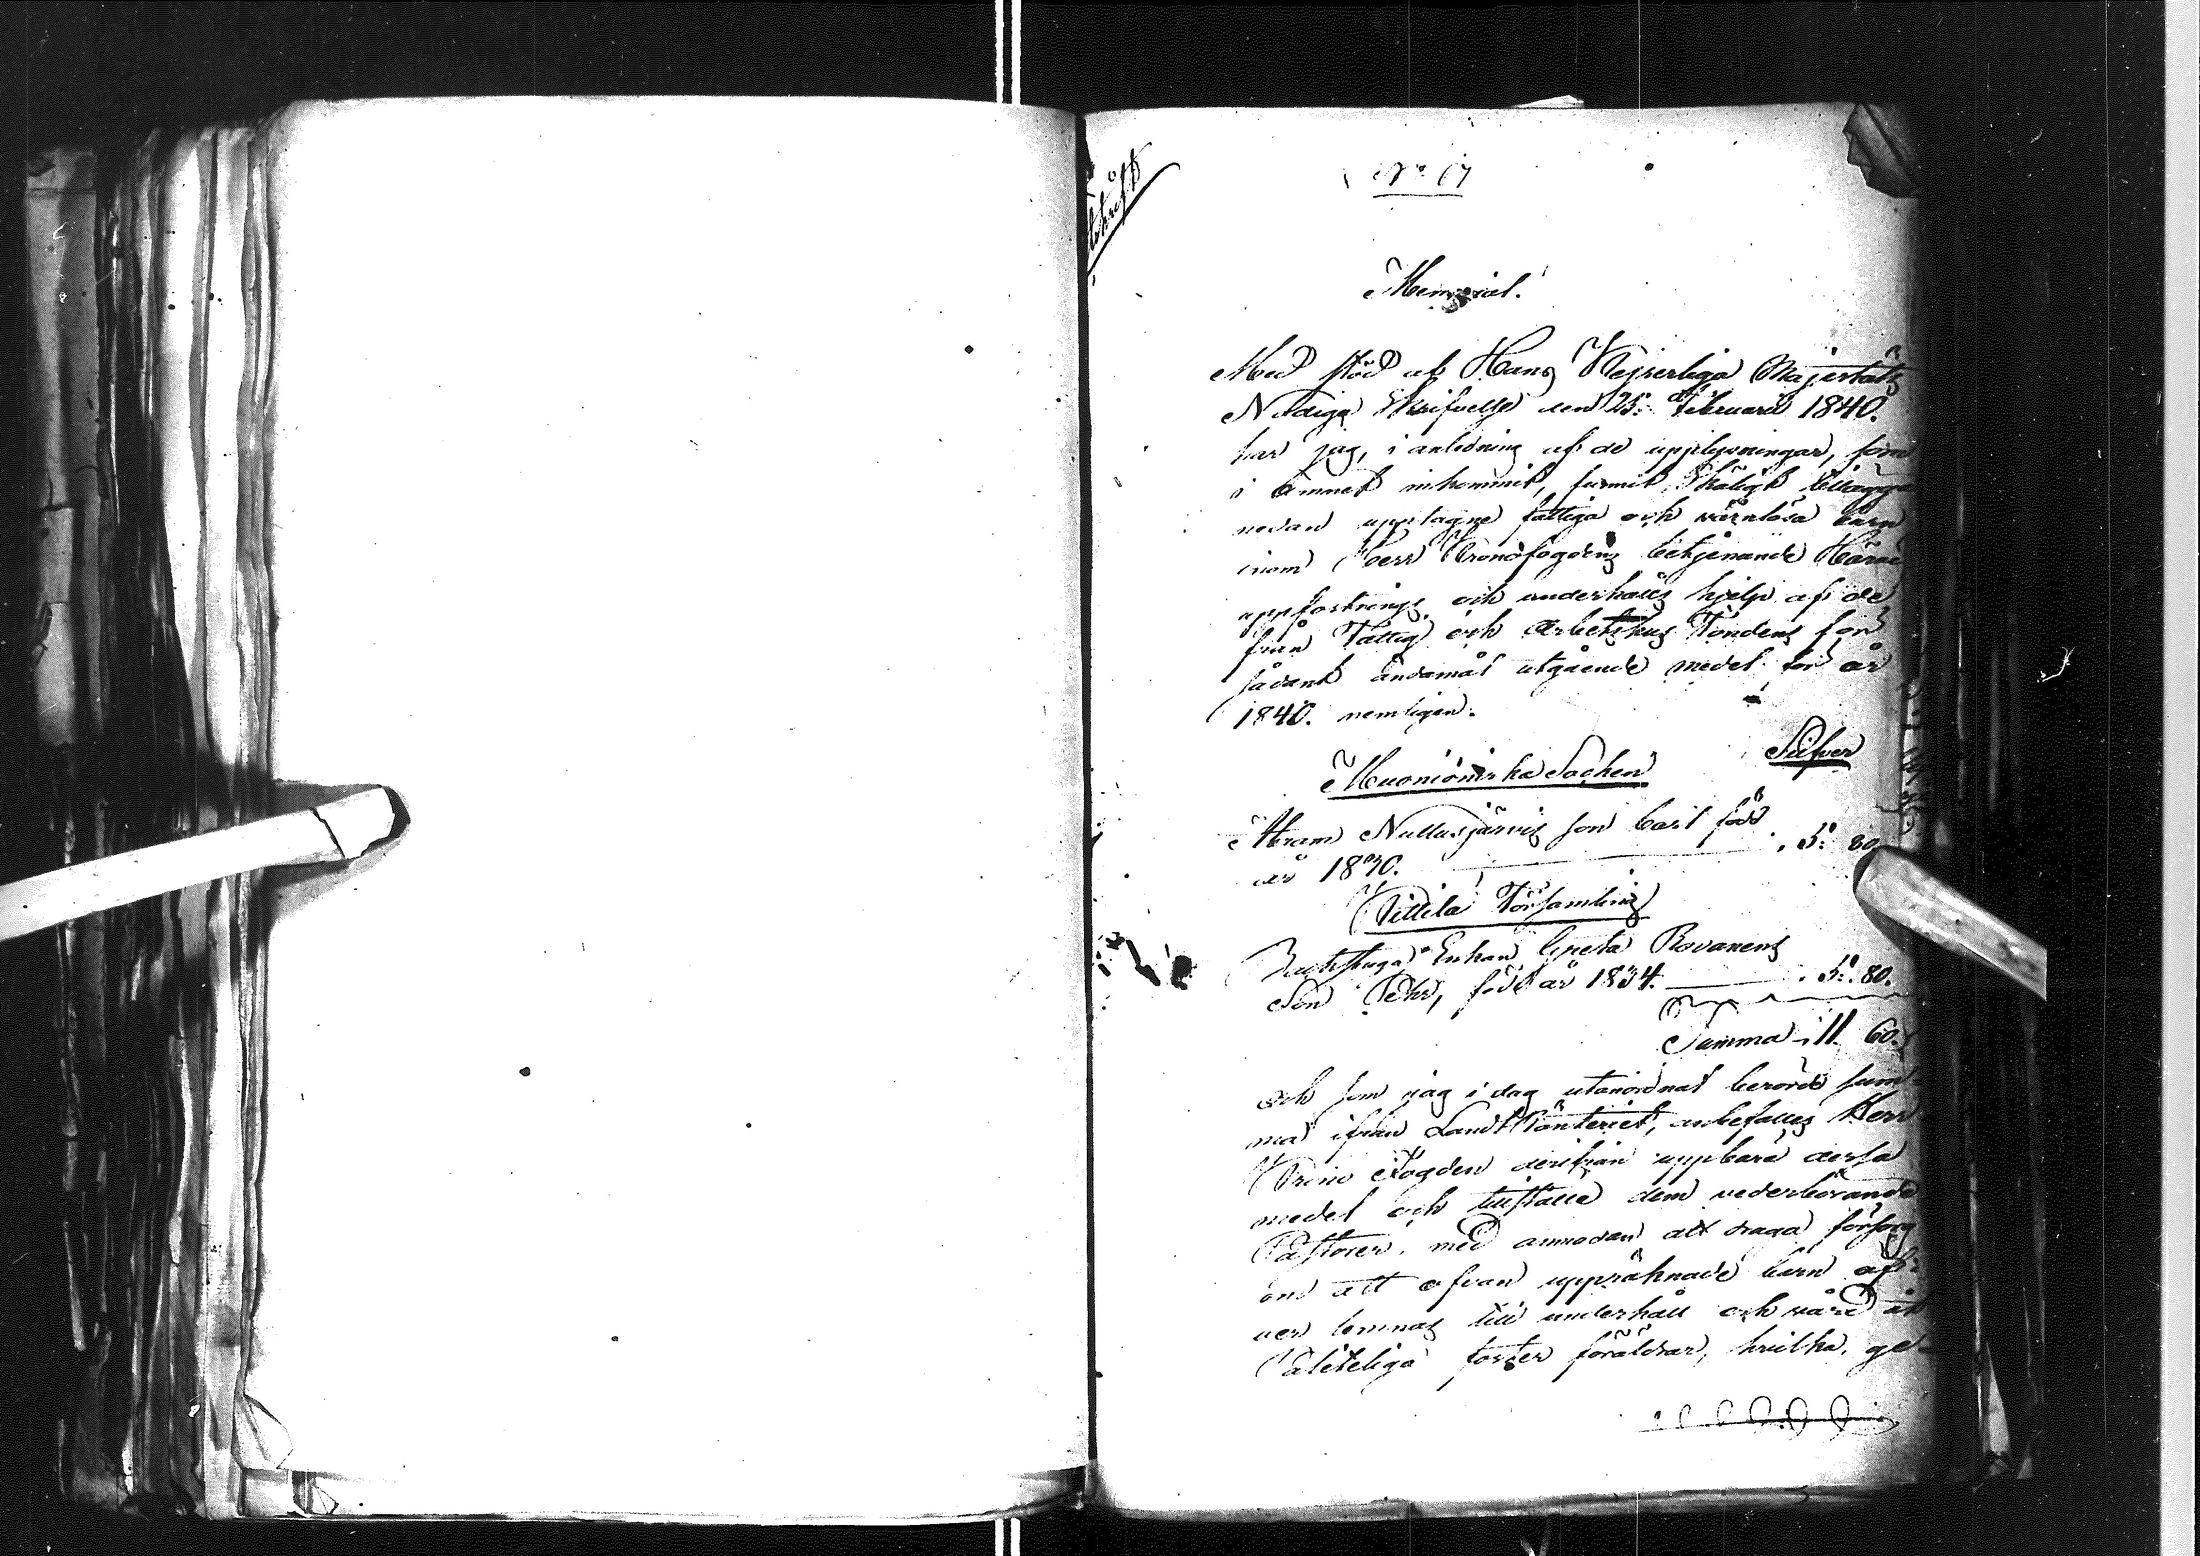 No 67
Memorial.
Med stöd af Hans Kejserliga Majestäts
Nådiga Skrifvelse den 25 Februarii 1840.
har jag, i anledning af de upplysningar, som
i ämnet inkommit, funnit skäligt tillägga
nedan upptagne fattiga och värnlösa barn
inom Herr Kronofogdens betjenande Härad
uppfostrings och underhålls hjelp af de
från Fattig och Arbetshus Fondens för
sådant ändamål utgående medel för år
1840. nemligen.
Silfver
Muonioniska Sochen
Abram Nullusjärvis son Carl född
år 1830. 5: 80
Kittila Församling
Backstuga Enkan Greta Rovanens
Son Pehr, född år 1834. 5: 80.
Summa 11 60.
och som jag i dag utanordnat berörde sum-
ma ifrån Landt Ränteriet, anbefalles Herr
Krono Fogden derifrån uppbära dessa
medel och tillställa dem vederbörande
Pastorer, med anmodan att draga försorg
om att ofvan uppräknade barn öf-
ver lemnas till underhåll och vård åt
pålitelige foster föräldrar, hvilka, ge-